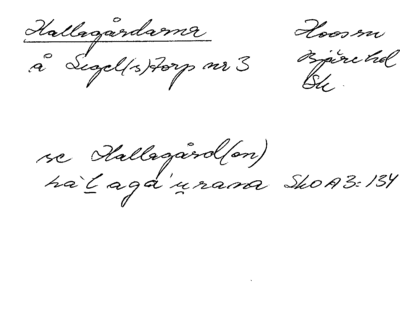 Hallagårdarna
å Segel(s)torp nr 3
Hoos sn
Bjäre hd
Sk
se Hallagård(en)
ha`l̲agå´u̲rana SkOA3:134